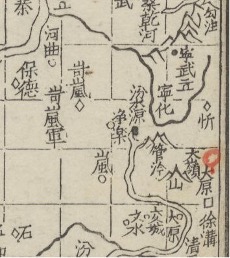 桑乾河
河曲
寧武
寧化
保德
岢嵐
岢嵐軍
汾源
靜樂
忻
管涔山
嵐
原口
徐溝
清
文水
交城
太原
石
汾